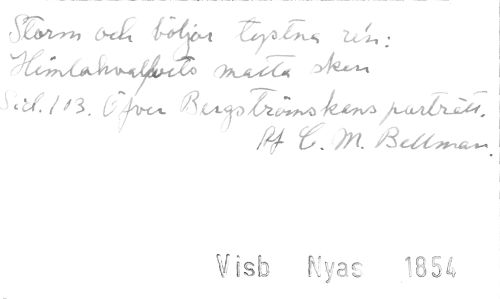 Storm och böljor tystna re'n:
Himlahvalfvets matta sken
Sid. 113. Öfver Bergströmskans porträtt.
Af C. M. Bellman.
Visb Nyas 1854